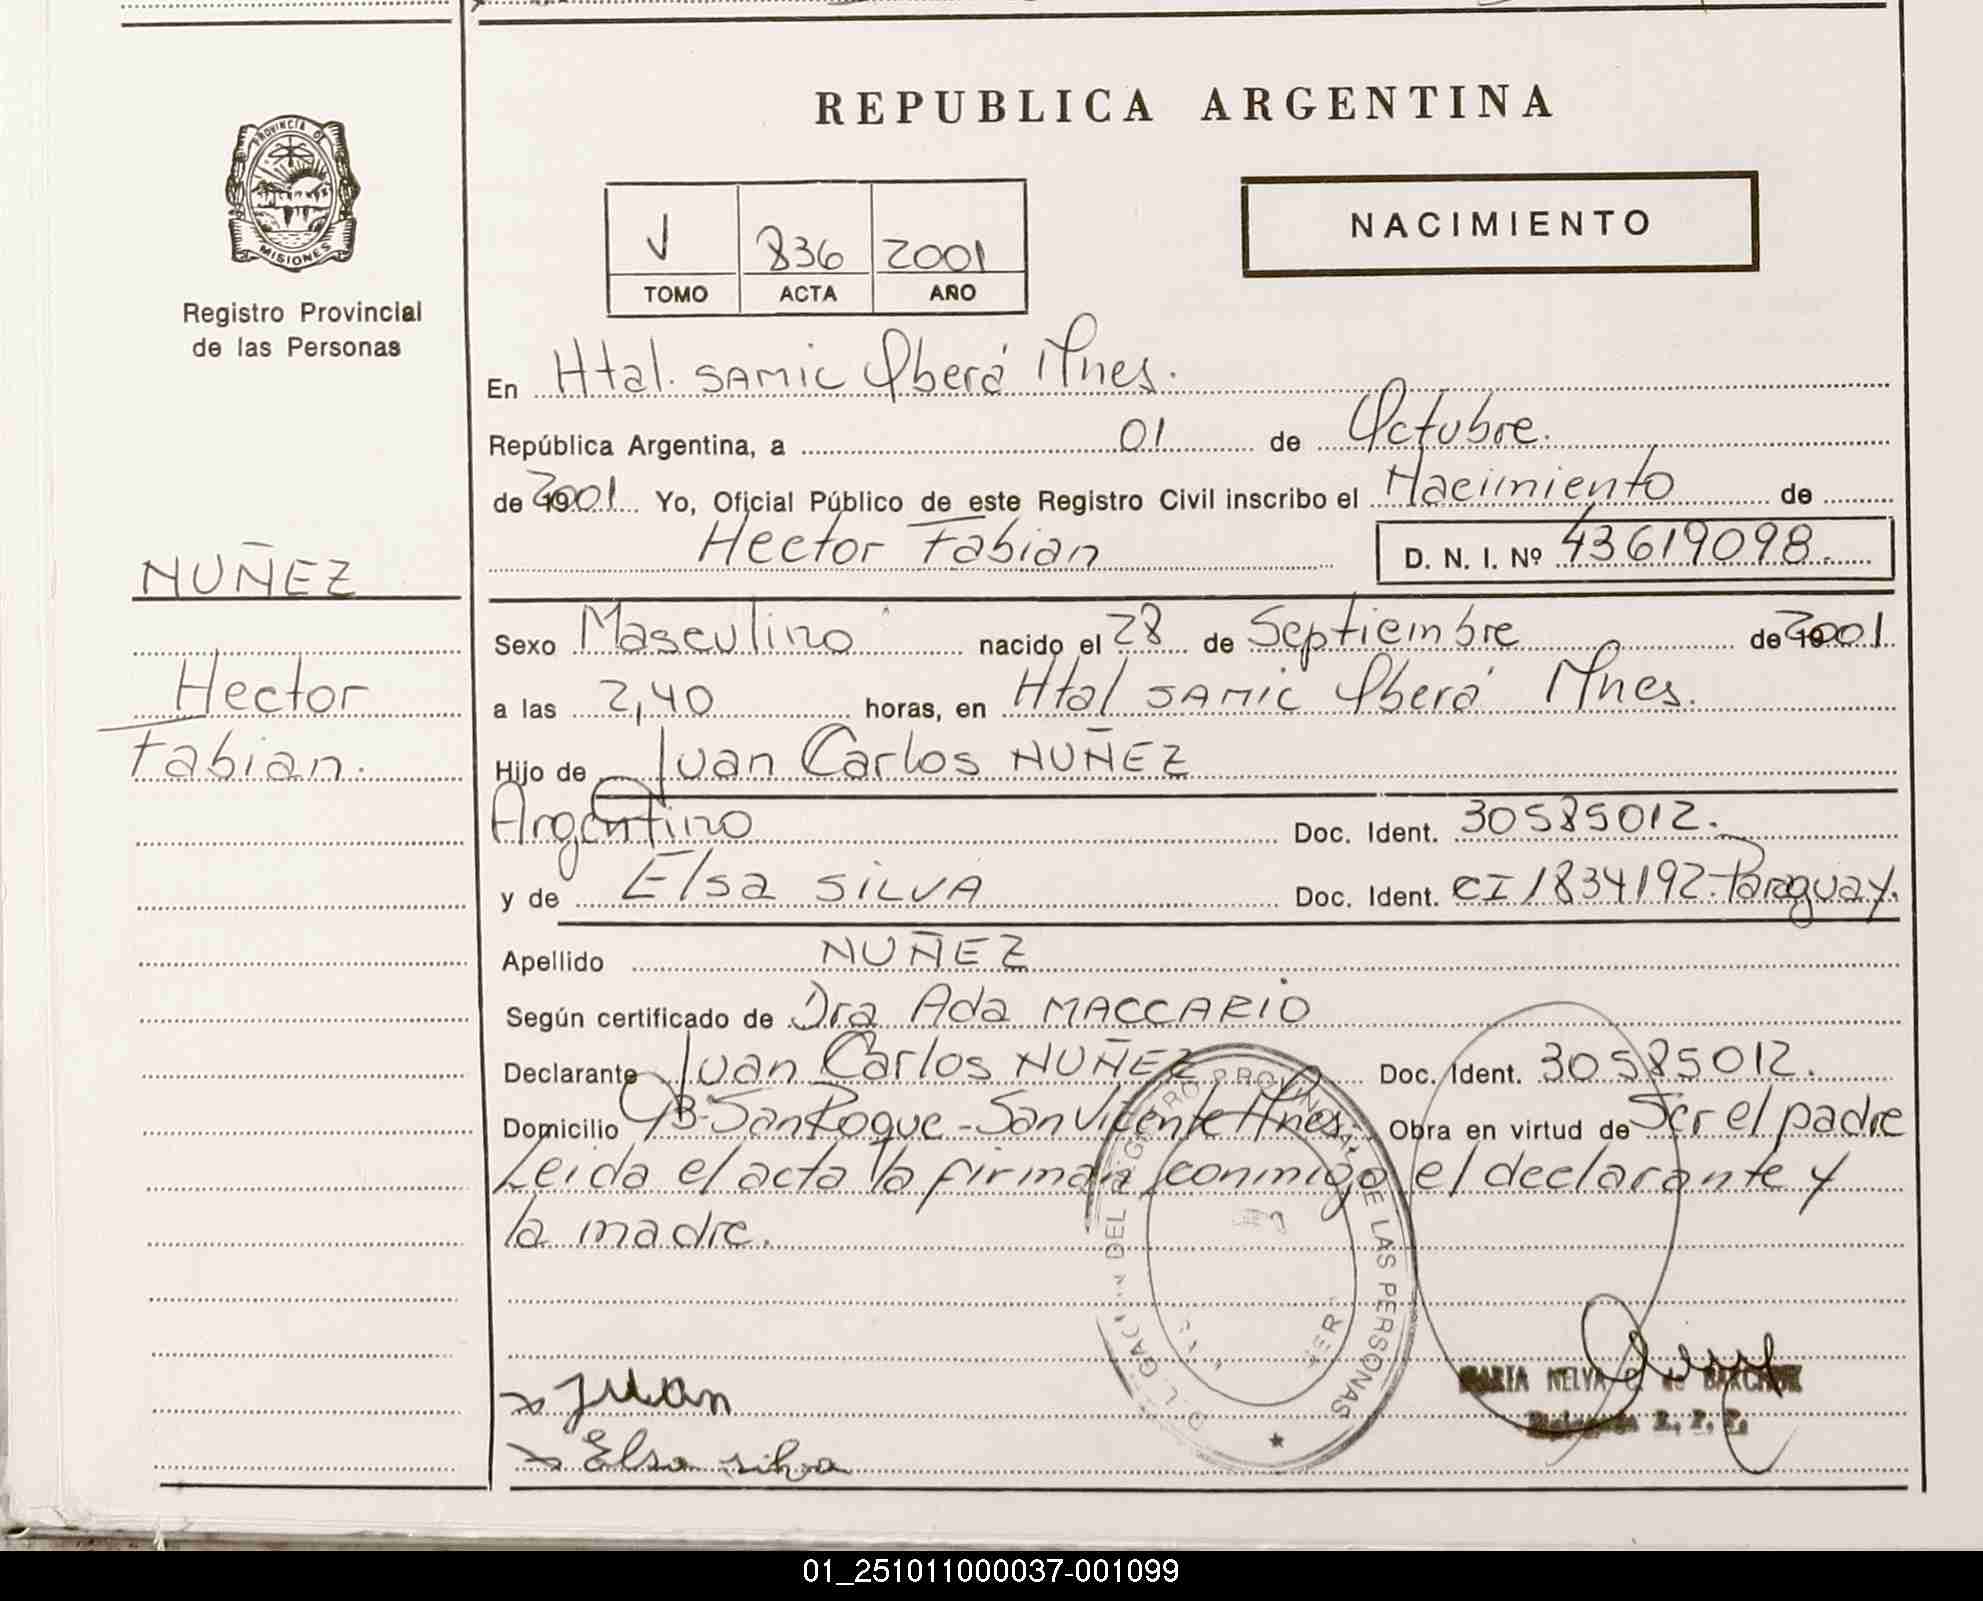 REPUBLICA ARGENTINA
PROVINCIA DE
MISIONES
Registro Provincial
de las Personas
NACIMIENTO
V 836 2001
TOMO ACTA AÑO
En Htal. SAMIC Oberá Mnes.
República Argentina, a 01 de Octubre.
de 2001 Yo, Oficial Público de este Registro Civil inscribo el Nacimiento de
Hector Fabian D. N. I. Nº 43619098.
NUÑEZ
Hector
Fabian.
Sexo Masculino nacido el 28 de Septiembre de 2001
a las 2,40 horas, en Htal SAMIC Oberá Mnes.
Hijo de Juan Carlos NUÑEZ
Argentino Doc. Ident. 30585012.
y de Elsa SILVA Doc. Ident. CI 1834192-Paraguay.
Apellido NUÑEZ
Según certificado de Dra Ada MACCARIO
Declarante Juan Carlos NUÑEZ Doc. Ident. 30585012.
Domicilio Bº-San Roque-San Vicente Mnes. Obra en virtud de Ser el padre
Leida el acta la firman conmigo el declarante y
la madre.
DEL REGISTRO PROVINCIAL DE LAS PERSONAS
Juan
Elsa silva
MARIA NELVA
01_251011000037-001099